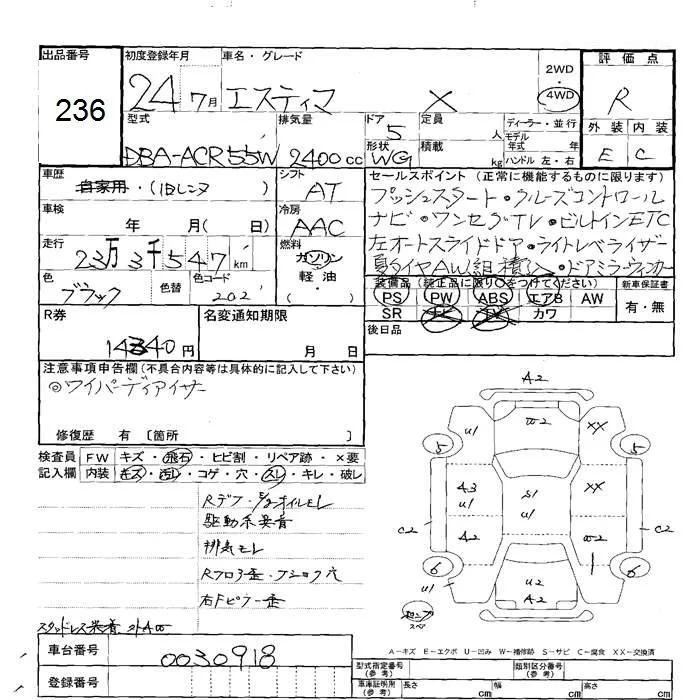 出品番号 初度登録年月 車名・グレード 2WD・4WD 評価点
236 24年7月 エスティマ X R
型式 排気量 ドア 定員 ディーラー・並行 外装 内装
DBA-ACR55W 2400cc 5 人 モデル年式 年 E C
形状 積載 ハンドル 左・右
WG kg
車歴 シフト セールスポイント (正常に機能するものに限ります)
自家用・(旧レンタ) AT プッシュスタート・クルーズコントロール
車検 冷房 ナビ・ワンセグTV・ビルトインETC
年 月(日) AAC 左オートスライドドア・ライトレベライザー
走行 燃料 夏タイヤAW組積込・ドアミラーウィンカー
23万3千547km ガソリン・軽・油 ( )
色 色替 色コード 装備品 (純正品に限り○をつけてください) 新車保証書
ブラック 202 PS PW ABS エアB AW 有・無
SR ナビ TV カワ
R券 名変通知期限 後日品
円 月 日
注意事項申告欄(不具合内容等は具体的に記入して下さい)
◎ワイパーディアイサー
修復歴 有 〔箇所 〕
検査員 FW キズ・飛石・ヒビ割・リペア跡・×要
記入欄 内装 キズ・汚レ・コゲ・穴・スレ・キレ・破レ
Rデフ・
駆動系異音
排気モレ
Rフロア歪・
右Fピラー歪
スタッドレス装着
車台番号 0030918
登録番号
A2
U1 W2 XX
5 5
A3 U1 S1 U1 XX
C2 A2 W2 C2
6 6
U1 U2 A2
スペア
A−キズ E−エクボ U−凹み W−補修跡 S−サビ C−腐食 XX−交換済
型式指定番号(参考) 類別区分番号(参考)
車庫証明用(参考) 長さ cm 幅 cm 高さ cm